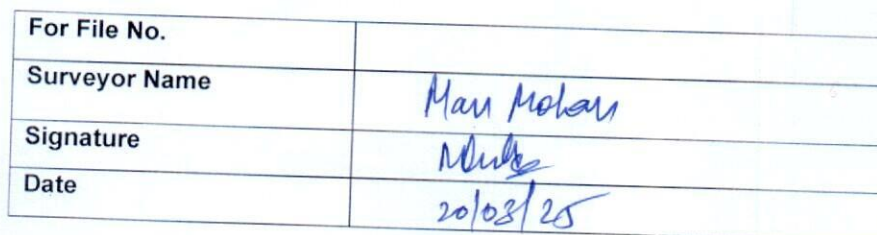 For File No.
Surveyor Name Man Mohan
Signature
Date 20/03/25